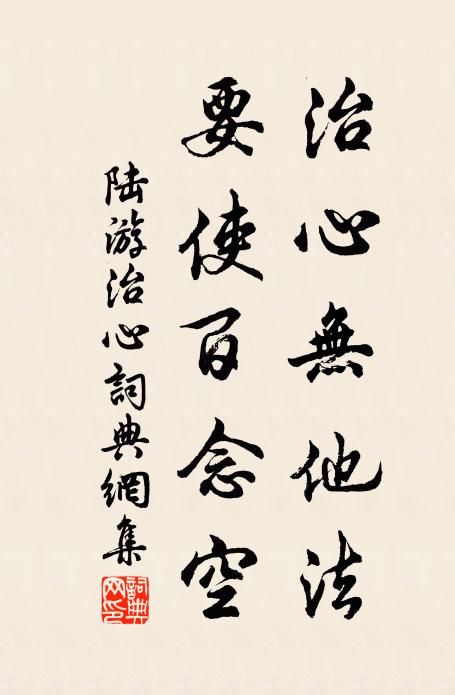 治心無他法
要使百念空
陆游治心詞典網集
詞典网印